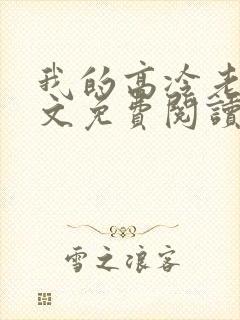 我的高冷老
文免費閱讀
雪之浪客